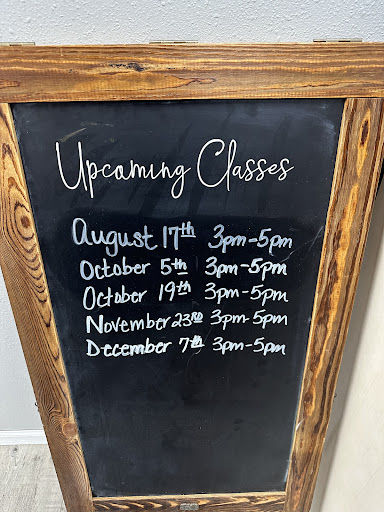 Upcoming Classes
August 17th 3pm-5pm
October 5th 3pm-5pm
October 19th 3pm-5pm
November 23RD 3pm-5pm
December 7th 3pm-5pm